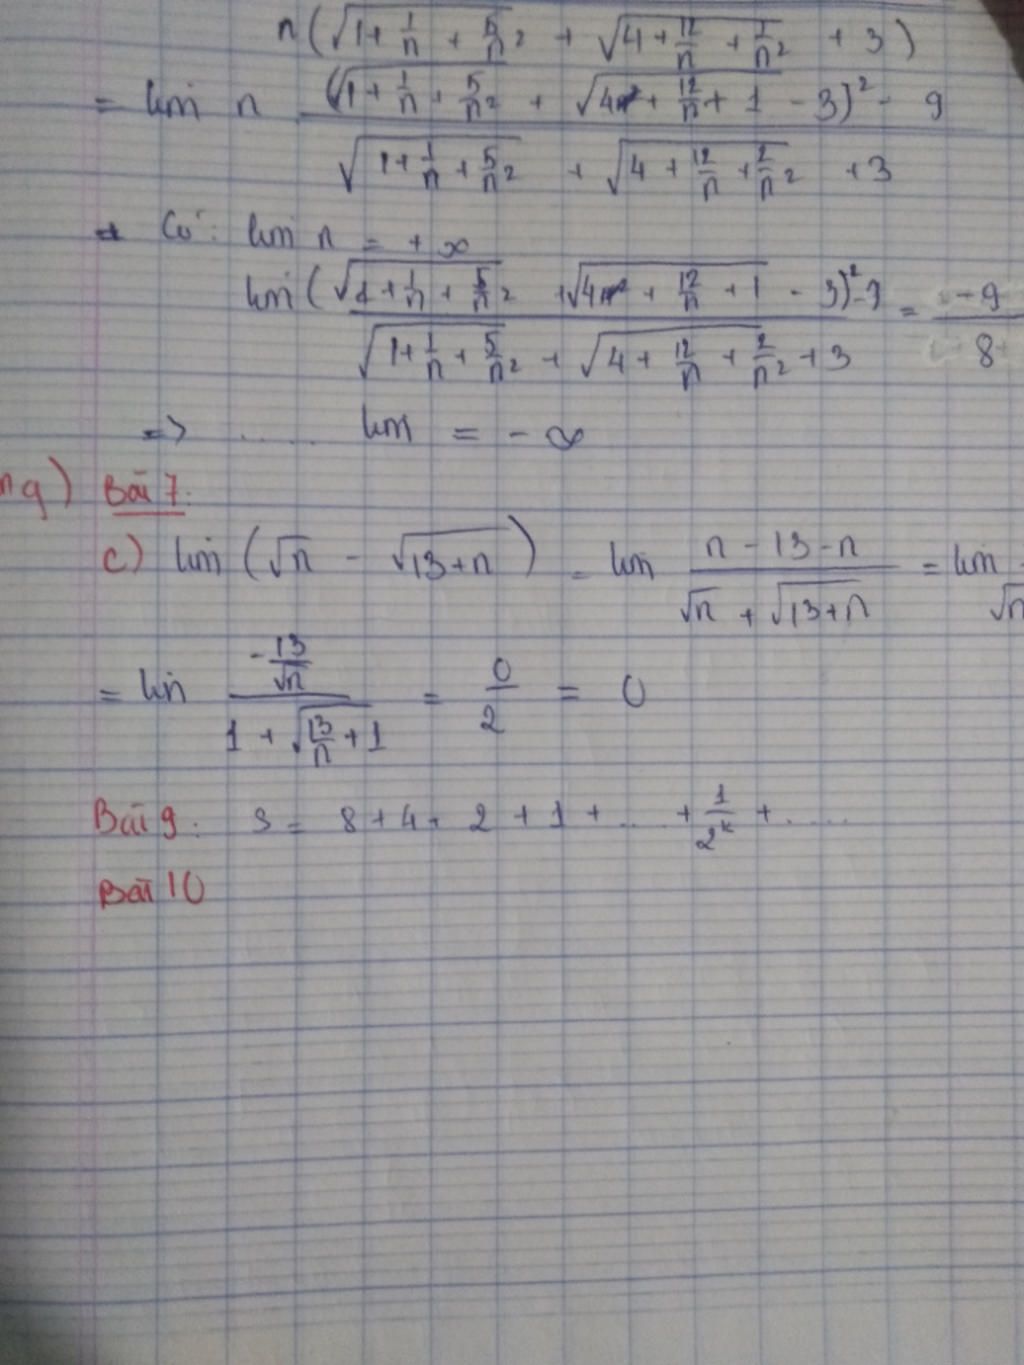 n(√(1 + 1/n + 5/n²) + √(4 + 12/n + 2/n²) + 3)
= lim n ((√(1 + 1/n + 5/n²) + √(4 + 12/n + 1) - 3)² - 9) / (√(1 + 1/n + 5/n²) + √(4 + 12/n + 2/n²) + 3)
Có: lim n = +∞
lim ((√(1 + 1/n + 5/n²) + √(4 + 12/n + 1) - 3)² - 9) / (√(1 + 1/n + 5/n²) + √(4 + 12/n + 2/n²) + 3) = -9/8
=> ..... lim = -∞
ng) Bài 7:
c) lim (√n - √(13+n)) = lim (n - 13 - n)/(√n + √(13+n)) = lim √n
= lim (-13/√n)/(1 + √(13/n + 1)) = 0/2 = 0
Bài 9: S = 8 + 4 + 2 + 1 + ... + 1/2ᵏ + .....
Bài 10